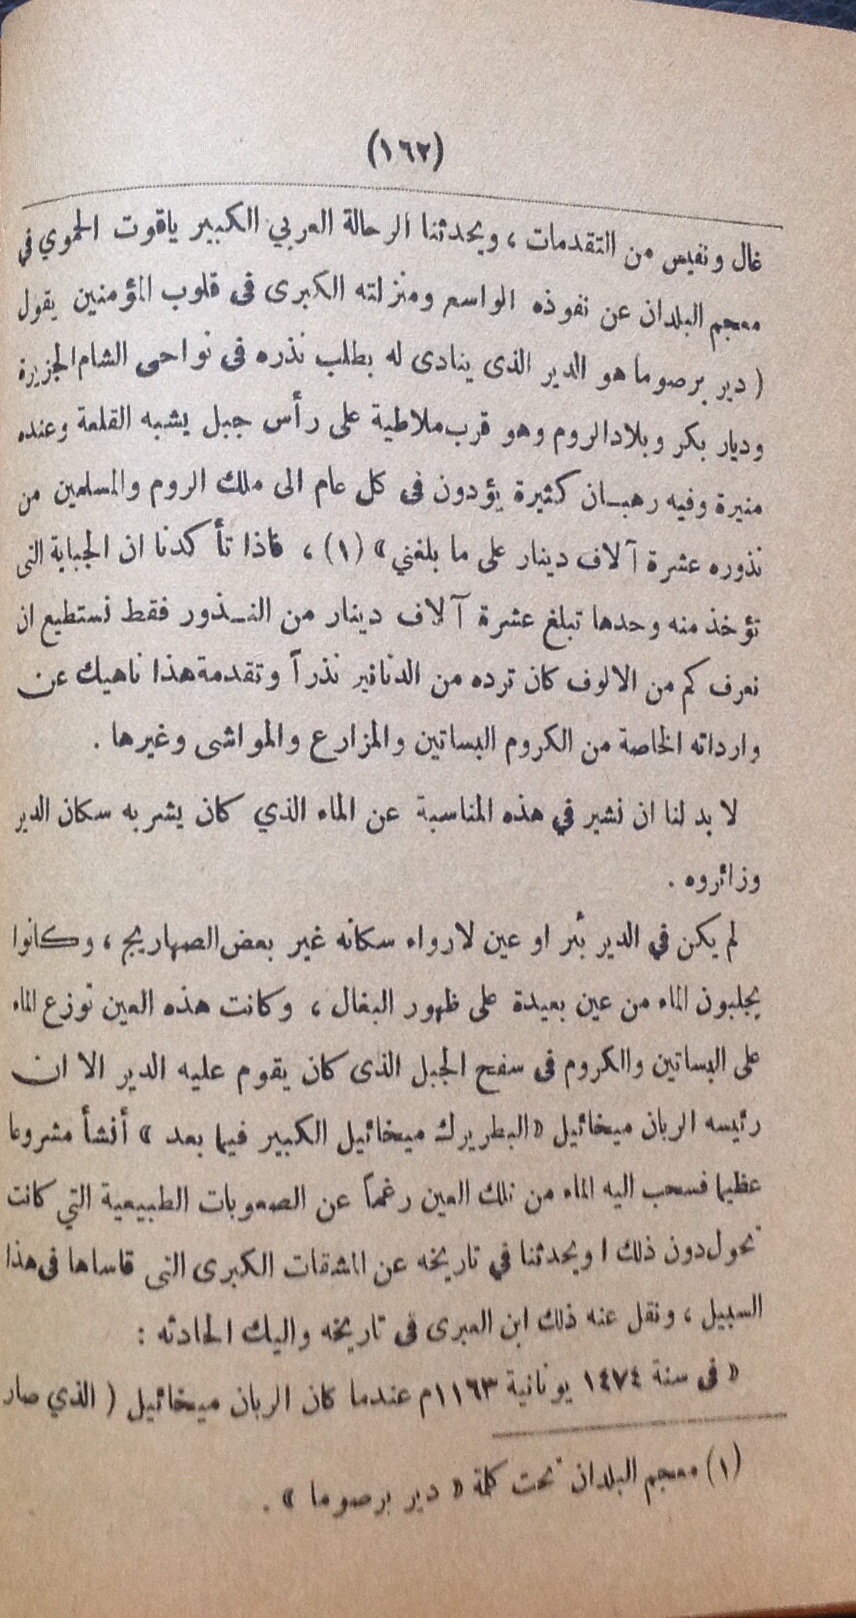 (١٦٢)
غال ونفيس من التقدمات ، ويحدثنا الرحالة العربي الكبير ياقوت الحموي في
معجم البلدان عن نفوذه الواسع ومنزلته الكبرى فى قلوب المؤمنين يقول
( دير برصوما هو الدير الذى ينادى له بطلب نذره فى نواحى الشام الجزيرة
وديار بكر وبلاد الروم وهو قرب ملاطية على رأس جبل يشبه القلعة وعنده
منيرة وفيه رهبـان كثيرة يؤدون فى كل عام الى ملك الروم والمسلمين من
نذوره عشرة آلاف دينار على ما بلغني » (١) ، فاذا تأكدنا ان الجباية التى
تؤخذ منه وحدها تبلغ عشرة آلاف دينار من النـذور فقط نستطيع ان
نعرف كم من الالوف كان ترده من الدنانير نذراً وتقدمة هذا ناهيك عن
وارداته الخاصة من الكروم البساتين والمزارع والمواشى وغيرها .
لا بد لنا ان نشير في هذه المناسبة عن الماء الذي كان يشربه سكان الدير
وزائروه .
لم يكن في الدير بئر او عين لارواء سكانه غير بعض الصهاريج ، وكانوا
يجلبون الماء من عين بعيدة على ظهور البغال ، وكانت هذه العين توزع الماء
على البساتين والكروم فى سفح الجبل الذى كان يقوم عليه الدير الا ان
رئيسه الربان ميخائيل «البطريرك ميخائيل الكبير فيما بعد » أنشأ مشروعا
عظيما فسحب اليه الماء من تلك العين رغماً عن الصعوبات الطبيعية التي كانت
تحول دون ذلك ! ويحدثنا في تاريخه عن المشقات الكبرى التى قاساها فى هذا
السبيل ، ونقل عنه ذلك ابن العبرى فى تاريخه واليك الحادثه :
« فى سنة ١٤٧٤ يونانية ١١٦٣م عندما كان الربان ميخائيل ( الذي صار
(١) معجم البلدان تحت كلمة « دير برصوما » .